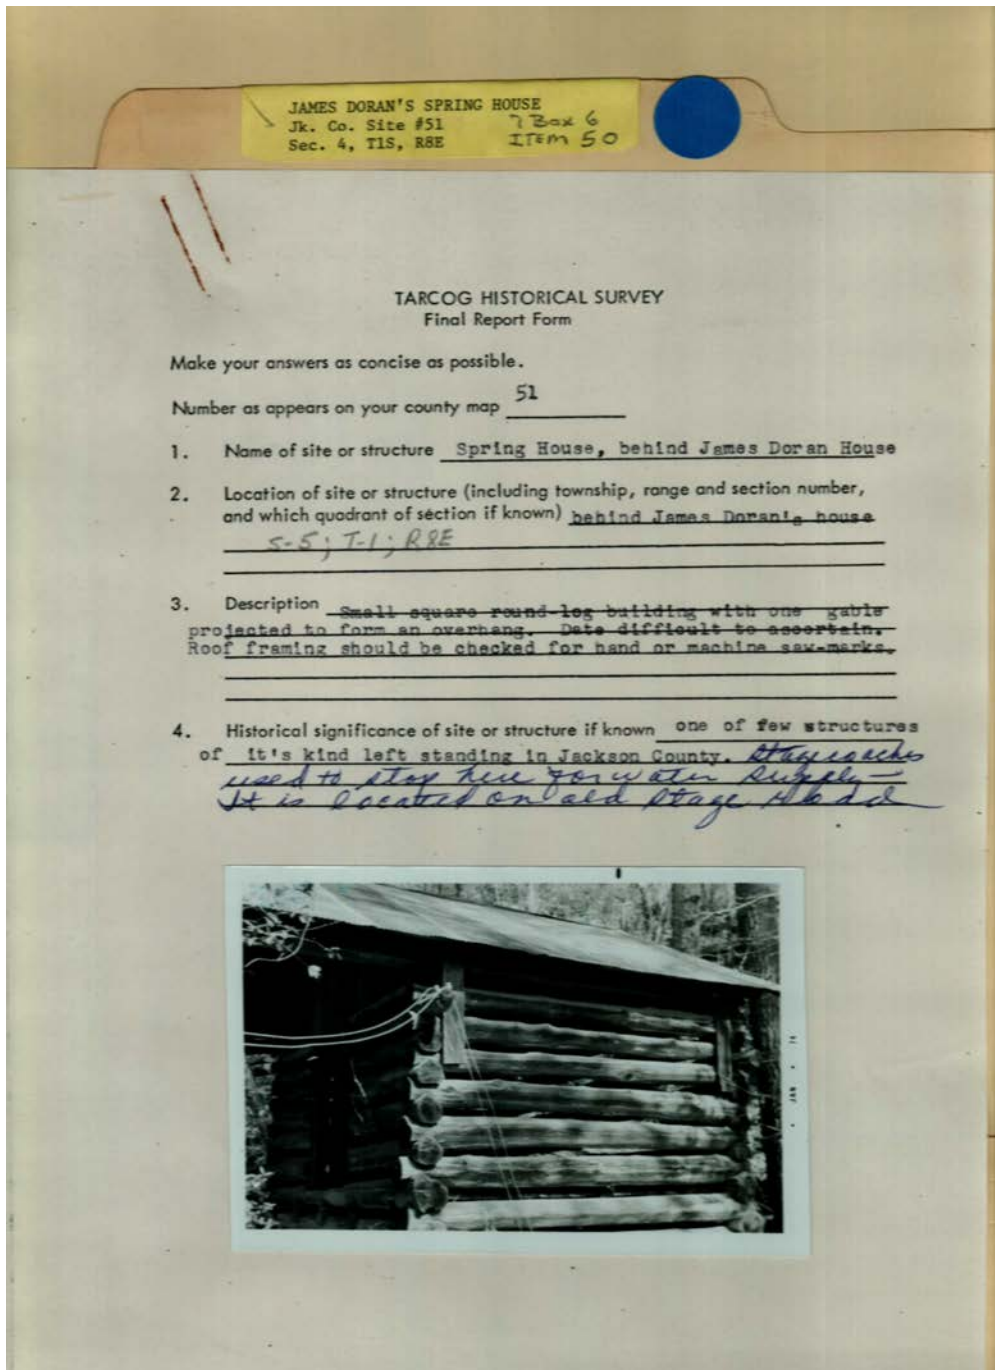 JAMES DORAN'S SPRING HOUSE
Jk. Co. Site #51 ? Box 6
Sec. 4, T1S, R8E ITEM 50
TARCOG HISTORICAL SURVEY
Final Report Form
Make your answers as concise as possible.
Number as appears on your county map 51
1. Name of site or structure Spring House, behind James Doran House
2. Location of site or structure (including township, range and section number,
and which quadrant of section if known) behind James Doran's house
S-5; T-1; R8E
3. Description Small square round-log building with one gable
projected to form an overhang. Date difficult to ascertain.
Roof framing should be checked for hand or machine saw-marks.
4. Historical significance of site or structure if known one of few structures
of it's kind left standing in Jackson County. Stagecoaches
used to stop here for water supply—
It is located on old stage road
JAN • 74